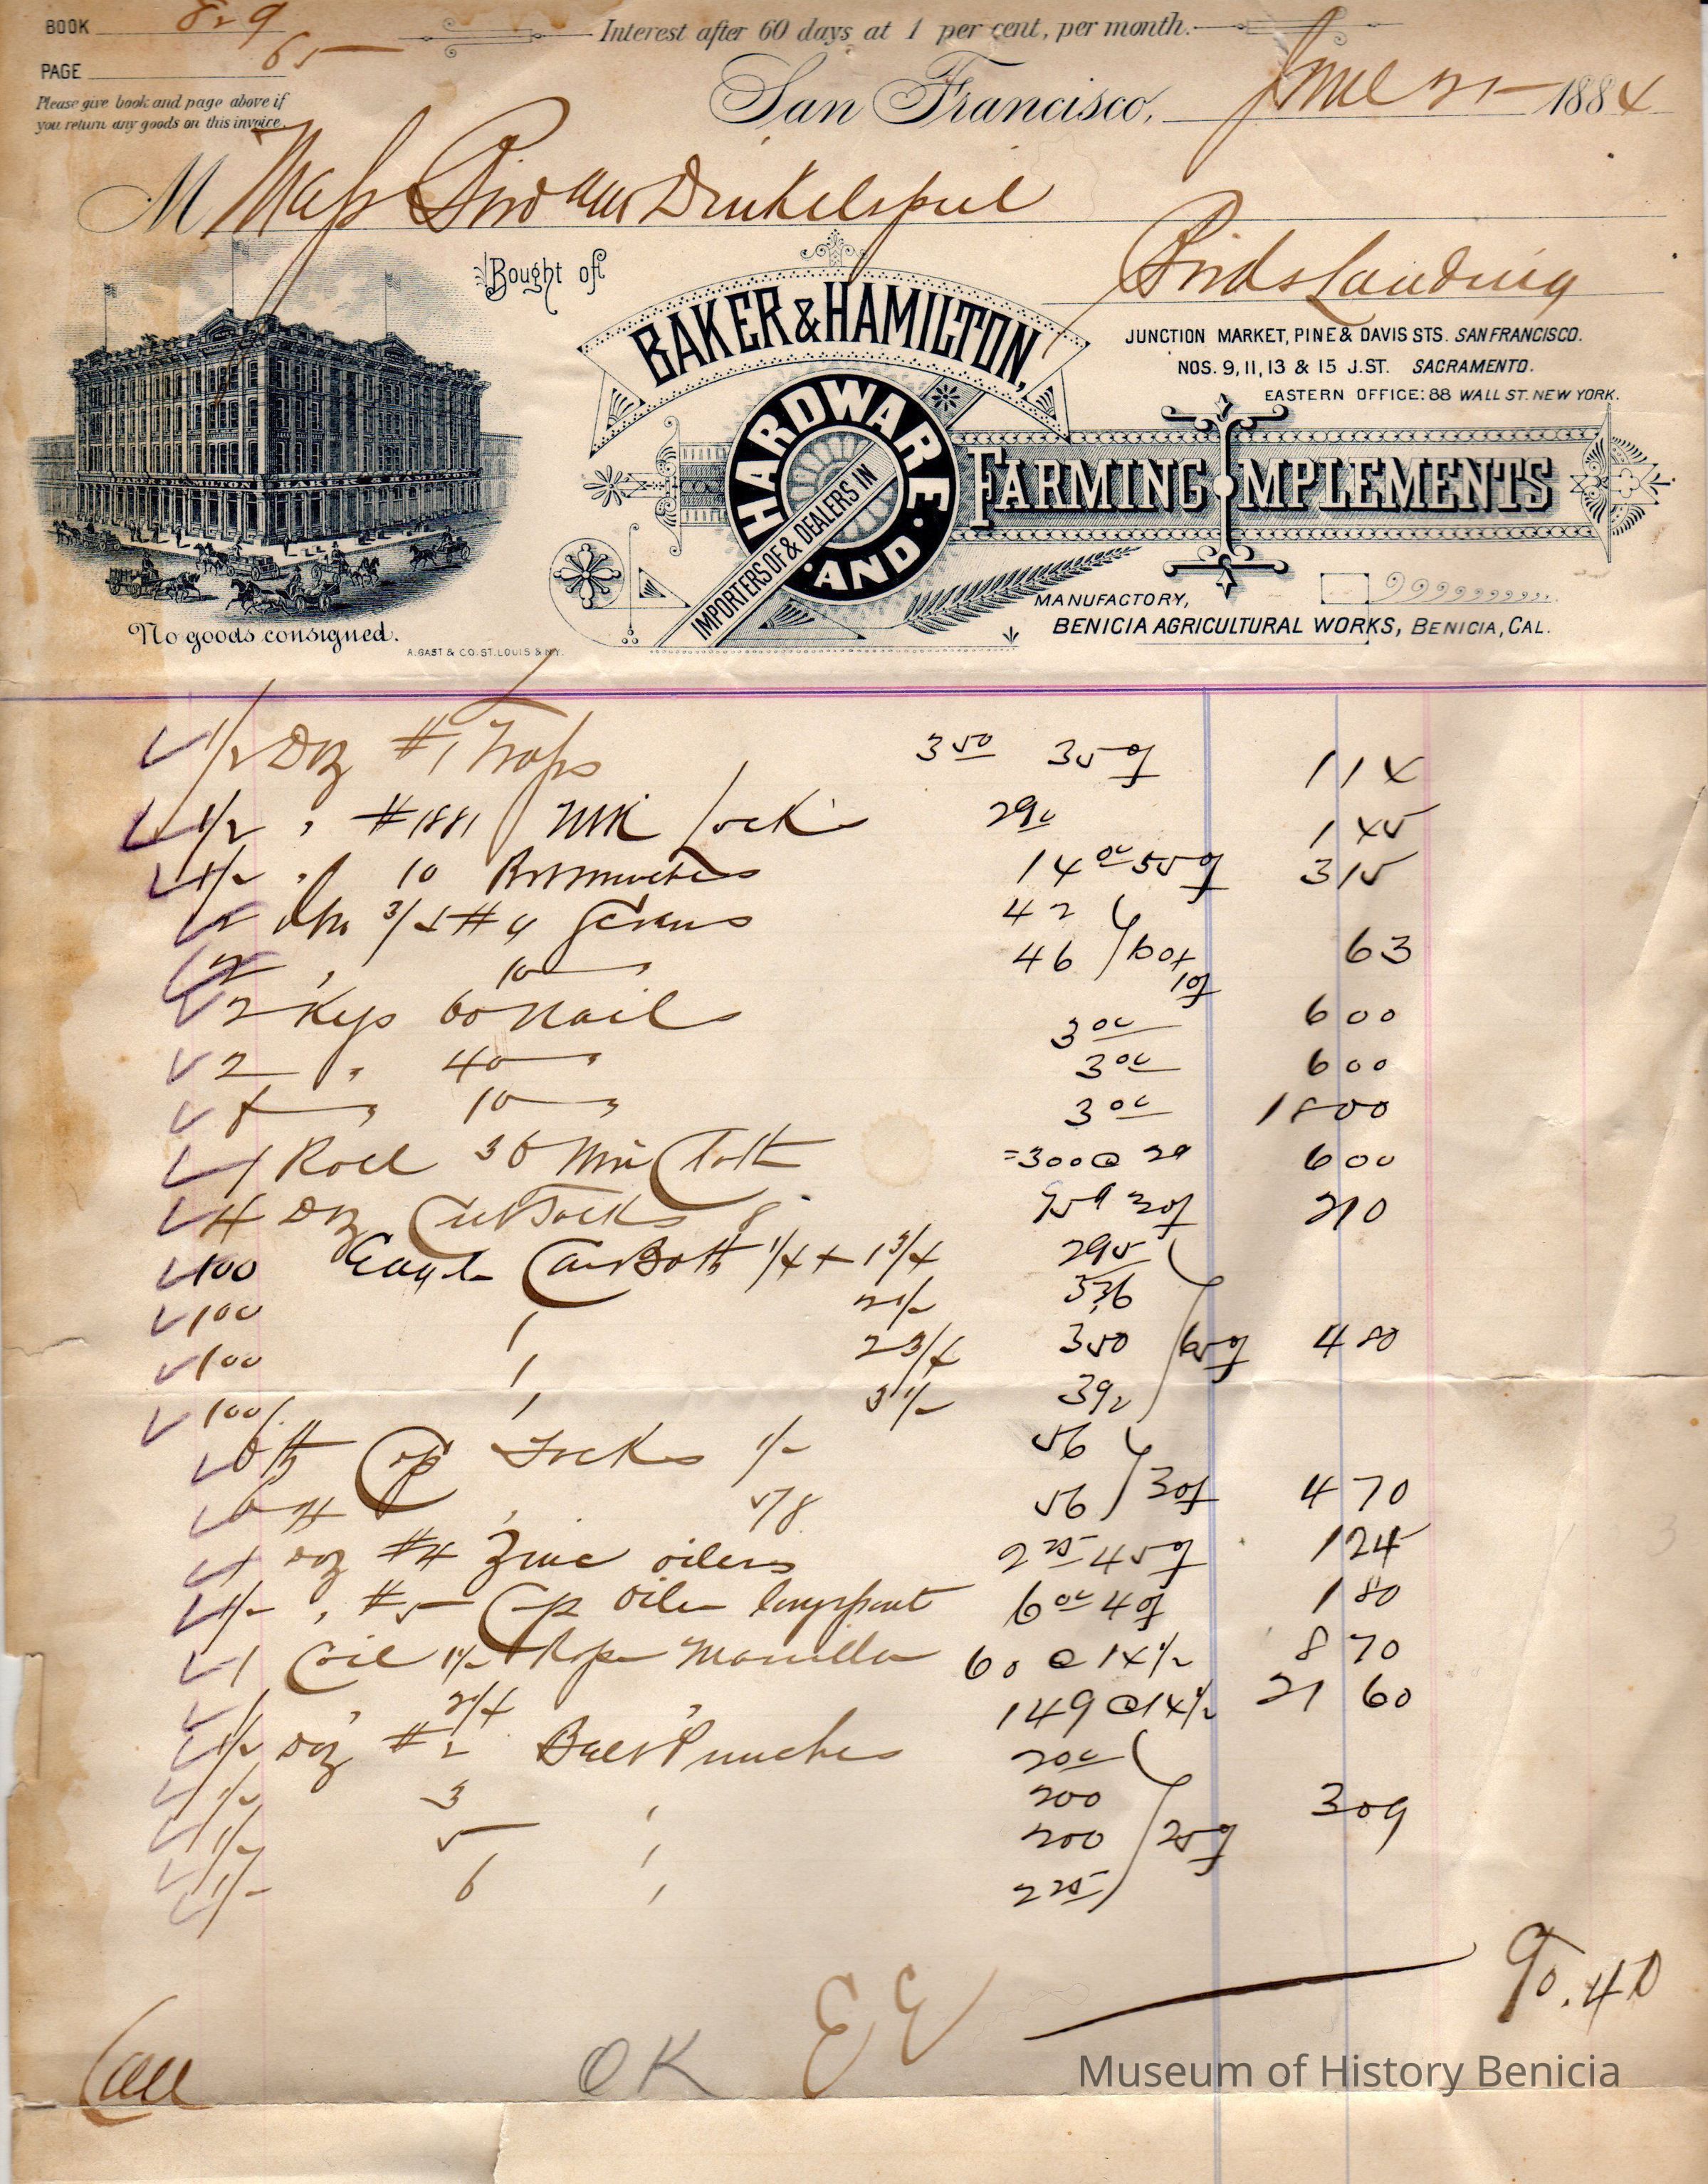 BOOK 829
PAGE 65
Please give book and page above if
you return any goods on this invoice.
Interest after 60 days at 1 per cent, per month.
San Francisco, June 21 1884
M Mess Bird and Dinkelspiel
Birds Landing
Bought of
BAKER & HAMILTON,
JUNCTION MARKET, PINE & DAVIS STS. SAN FRANCISCO.
NOS. 9, 11, 13 & 15 J. ST. SACRAMENTO.
EASTERN OFFICE: 88 WALL ST. NEW YORK.
IMPORTERS OF & DEALERS IN
HARDWARE AND
FARMING IMPLEMENTS
MANUFACTORY,
BENICIA AGRICULTURAL WORKS, BENICIA, CAL.
BAKER & HAMILTON
No goods consigned.
A. GAST & CO. ST. LOUIS & N.Y.
1/2 Doz #1 Traps 3 50 35 1 14
1/2 " #1881 Lock 2 90 1 45
1/2 " 10 14 00 55 3 15
2 #9 Screws 42
2 " 10 " 46 60+10 63
2 Kegs 60 Nails 3 00 6 00
2 " 40 " 3 00 6 00
" 10 " 3 00 18 00
1 Roll 36 Cloth =300 @ 2 6 00
4 Doz Cut Tacks 8 75 30 2 10
100 Eagle Car Bolts 1/4 + 1 3/4 295
100 " 2 1/2 336
100 " 2 3/4 350 65 4 80
100 " 3 1/2 392
6 lb Cop Tacks 1/2 56
6 lb " 5/8 56 30 4 70
1 Doz #4 Zinc oilers 2 25 45 1 24
1/2 " #5 Cop Oiler longspout 6 00 40 1 80
1 Coil 1 1/2 Rope Manilla 60 @ 14 1/2 8 70
" 2 1/4 " 149 @ 14 1/2 21 60
1/2 Doz # 2 Belt Punches 200
1/2 3 " 200
1/2 5 " 200 25 3 09
1/2 6 " 225
90.40
Call OK EE
Museum of History Benicia